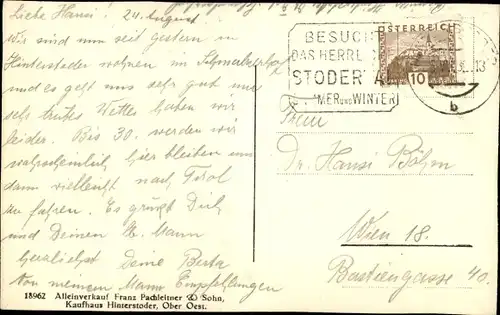 Liebe Hansi! 24. August
Wir sind nun seit gestern in
Hinterstoder wohnen im
und es geht uns sehr gut nur
sehr trübes Wetter haben wir
leider. Bis 30. werden wir
wahrscheinlich hier bleiben um
dann vielleicht nach Tirol
zu fahren. Es grüßt Dich
und Deinen lb. Mann
herzlichst Deine Berta
Von meinem Mann Empfehlungen
18962 Alleinverkauf Franz Pachleitner & Sohn,
Kaufhaus Hinterstoder, Ober Oest.
BESUCH
DAS HERRL
STODER
MER UND WINTER
ÖSTERREICH
10
13
b
Frau
Dr. Hansi Böhm
Wien 18.
Bastiengasse 40.